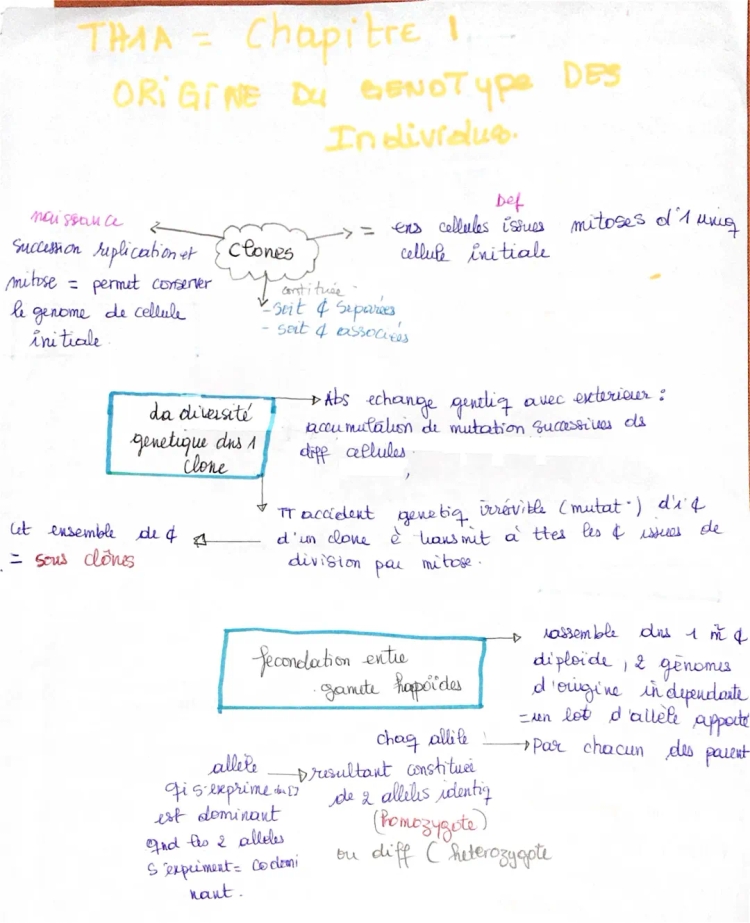 TH1A = Chapitre 1
ORIGINE DU GENOTYPE DES
Individus.
naissance
succession replication et
mitose = permet conserver
le genome de cellule
initiale.
Clones
Def
= ens cellules issues mitoses d'1 uniq
cellule initiale
constituée
- soit ¢ separées
- soit ¢ associées
La diversité
genetique dns 1
clone
Abs echange genetiq avec exterieur :
accumulation de mutation successives ds
diff cellules.
TT accident genetiq irrévible (mutat°) d'1 ¢
d'un clone è transmit à ttes les ¢ issues de
division par mitose.
Cet ensemble de ¢
= sous clônes
fecondation entre
gamete hapoïdes
rassemble dns 1 m̃ ¢
diploïde, 2 génomes
d'origine independante
= un lot d'allèle apporté
Par chacun des parent
chaq allèle
resultant constituée
de 2 allèles identiq
(homozygote)
ou diff ( heterozygote
allèle
qi s'exprime
est dominant
qnd les 2 alleles
s'expriment = codomi
nant.